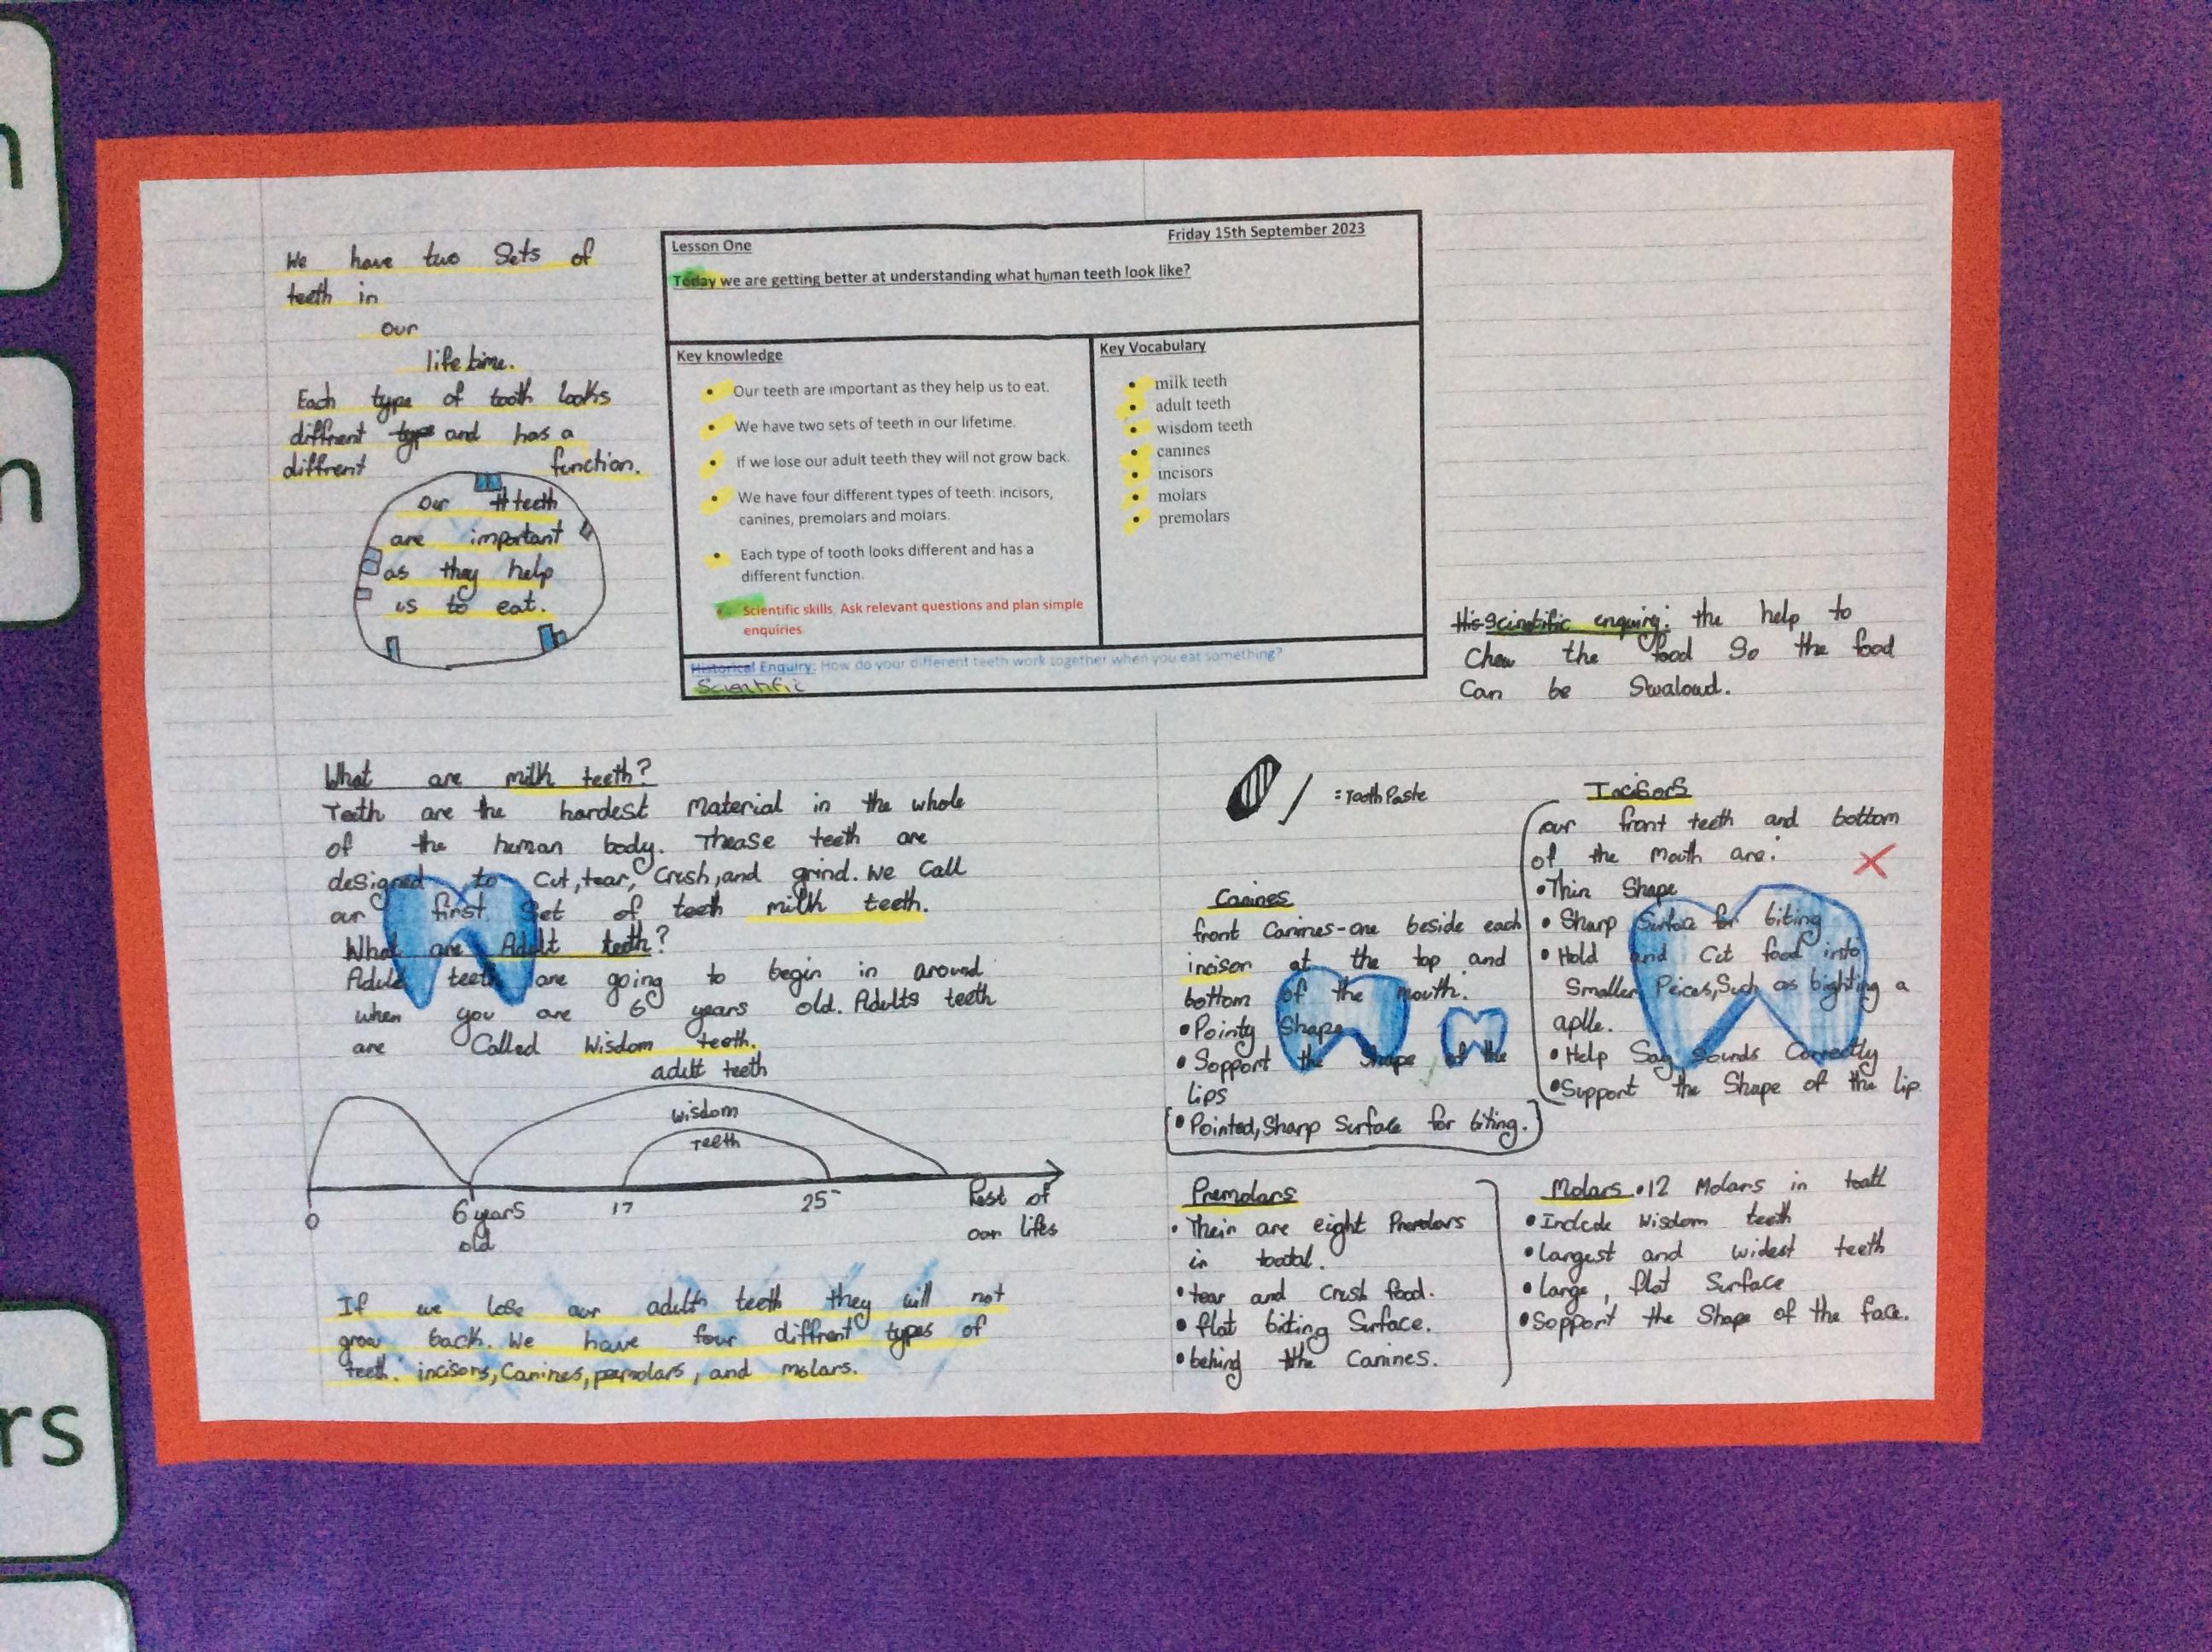 We have two Sets of
teeth in
our
life time.
Each type of tooth looks
diffrent type and has a
diffrent function.
our teeth
are important
as they help
us to eat.
Lesson One
Friday 15th September 2023
Today we are getting better at understanding what human teeth look like?
Key knowledge
• Our teeth are important as they help us to eat.
• We have two sets of teeth in our lifetime.
• If we lose our adult teeth they will not grow back.
• We have four different types of teeth: incisors,
canines, premolars and molars.
• Each type of tooth looks different and has a
different function.
• Scientific skills. Ask relevant questions and plan simple
enquiries
Key Vocabulary
• milk teeth
• adult teeth
• wisdom teeth
• canines
• incisors
• molars
• premolars
Historical Enquiry: How do your different teeth work together when you eat something?
Scientific
His scintific enquiry: the help to
Chew the food So the food
Can be Swaloud.
What are milk teeth?
Teeth are the hardest Material in the whole
of the human body. Thease teeth are
designed to Cut, tear, Crush, and grind. We Call
our first Set of teeth milk teeth.
What are Adult teeth?
Adult teeth are going to begin in around
when you are 6 years old. Adults teeth
are Called Wisdom teeth.
adult teeth
wisdom
Teeth
0
6 years
old
17
25
Rest of
our lifes
If we lose our adult teeth they will not
grow back. We have four diffrent types of
teeth: incisors, Canines, permolars, and molars.
: Tooth Paste
Canines
front Canines-one beside each
incisor at the top and
bottom of the mouth.
• Pointy Shape
• Sopport the Shape of the
Lips
• Pointed, Sharp Surface for biting.
Incisors
our front teeth and bottom
of the mouth are:
• Thin Shape
• Sharp Surface for biting
• Hold and Cut food into
Smaller Peices, Such as bighting a
aplle.
• Help Say Sounds Correctly
• Support the Shape of the lip
Premolars
• Their are eight Premolars
in tootal.
• tear and Crush food.
• flat biting Surface.
• behing the Canines.
Molars • 12 Molars in tootl
• Include Wisdom teeth
• Largest and widest teeth
• large, flat Surface
• Sopport the Shape of the face.
n
n
rs